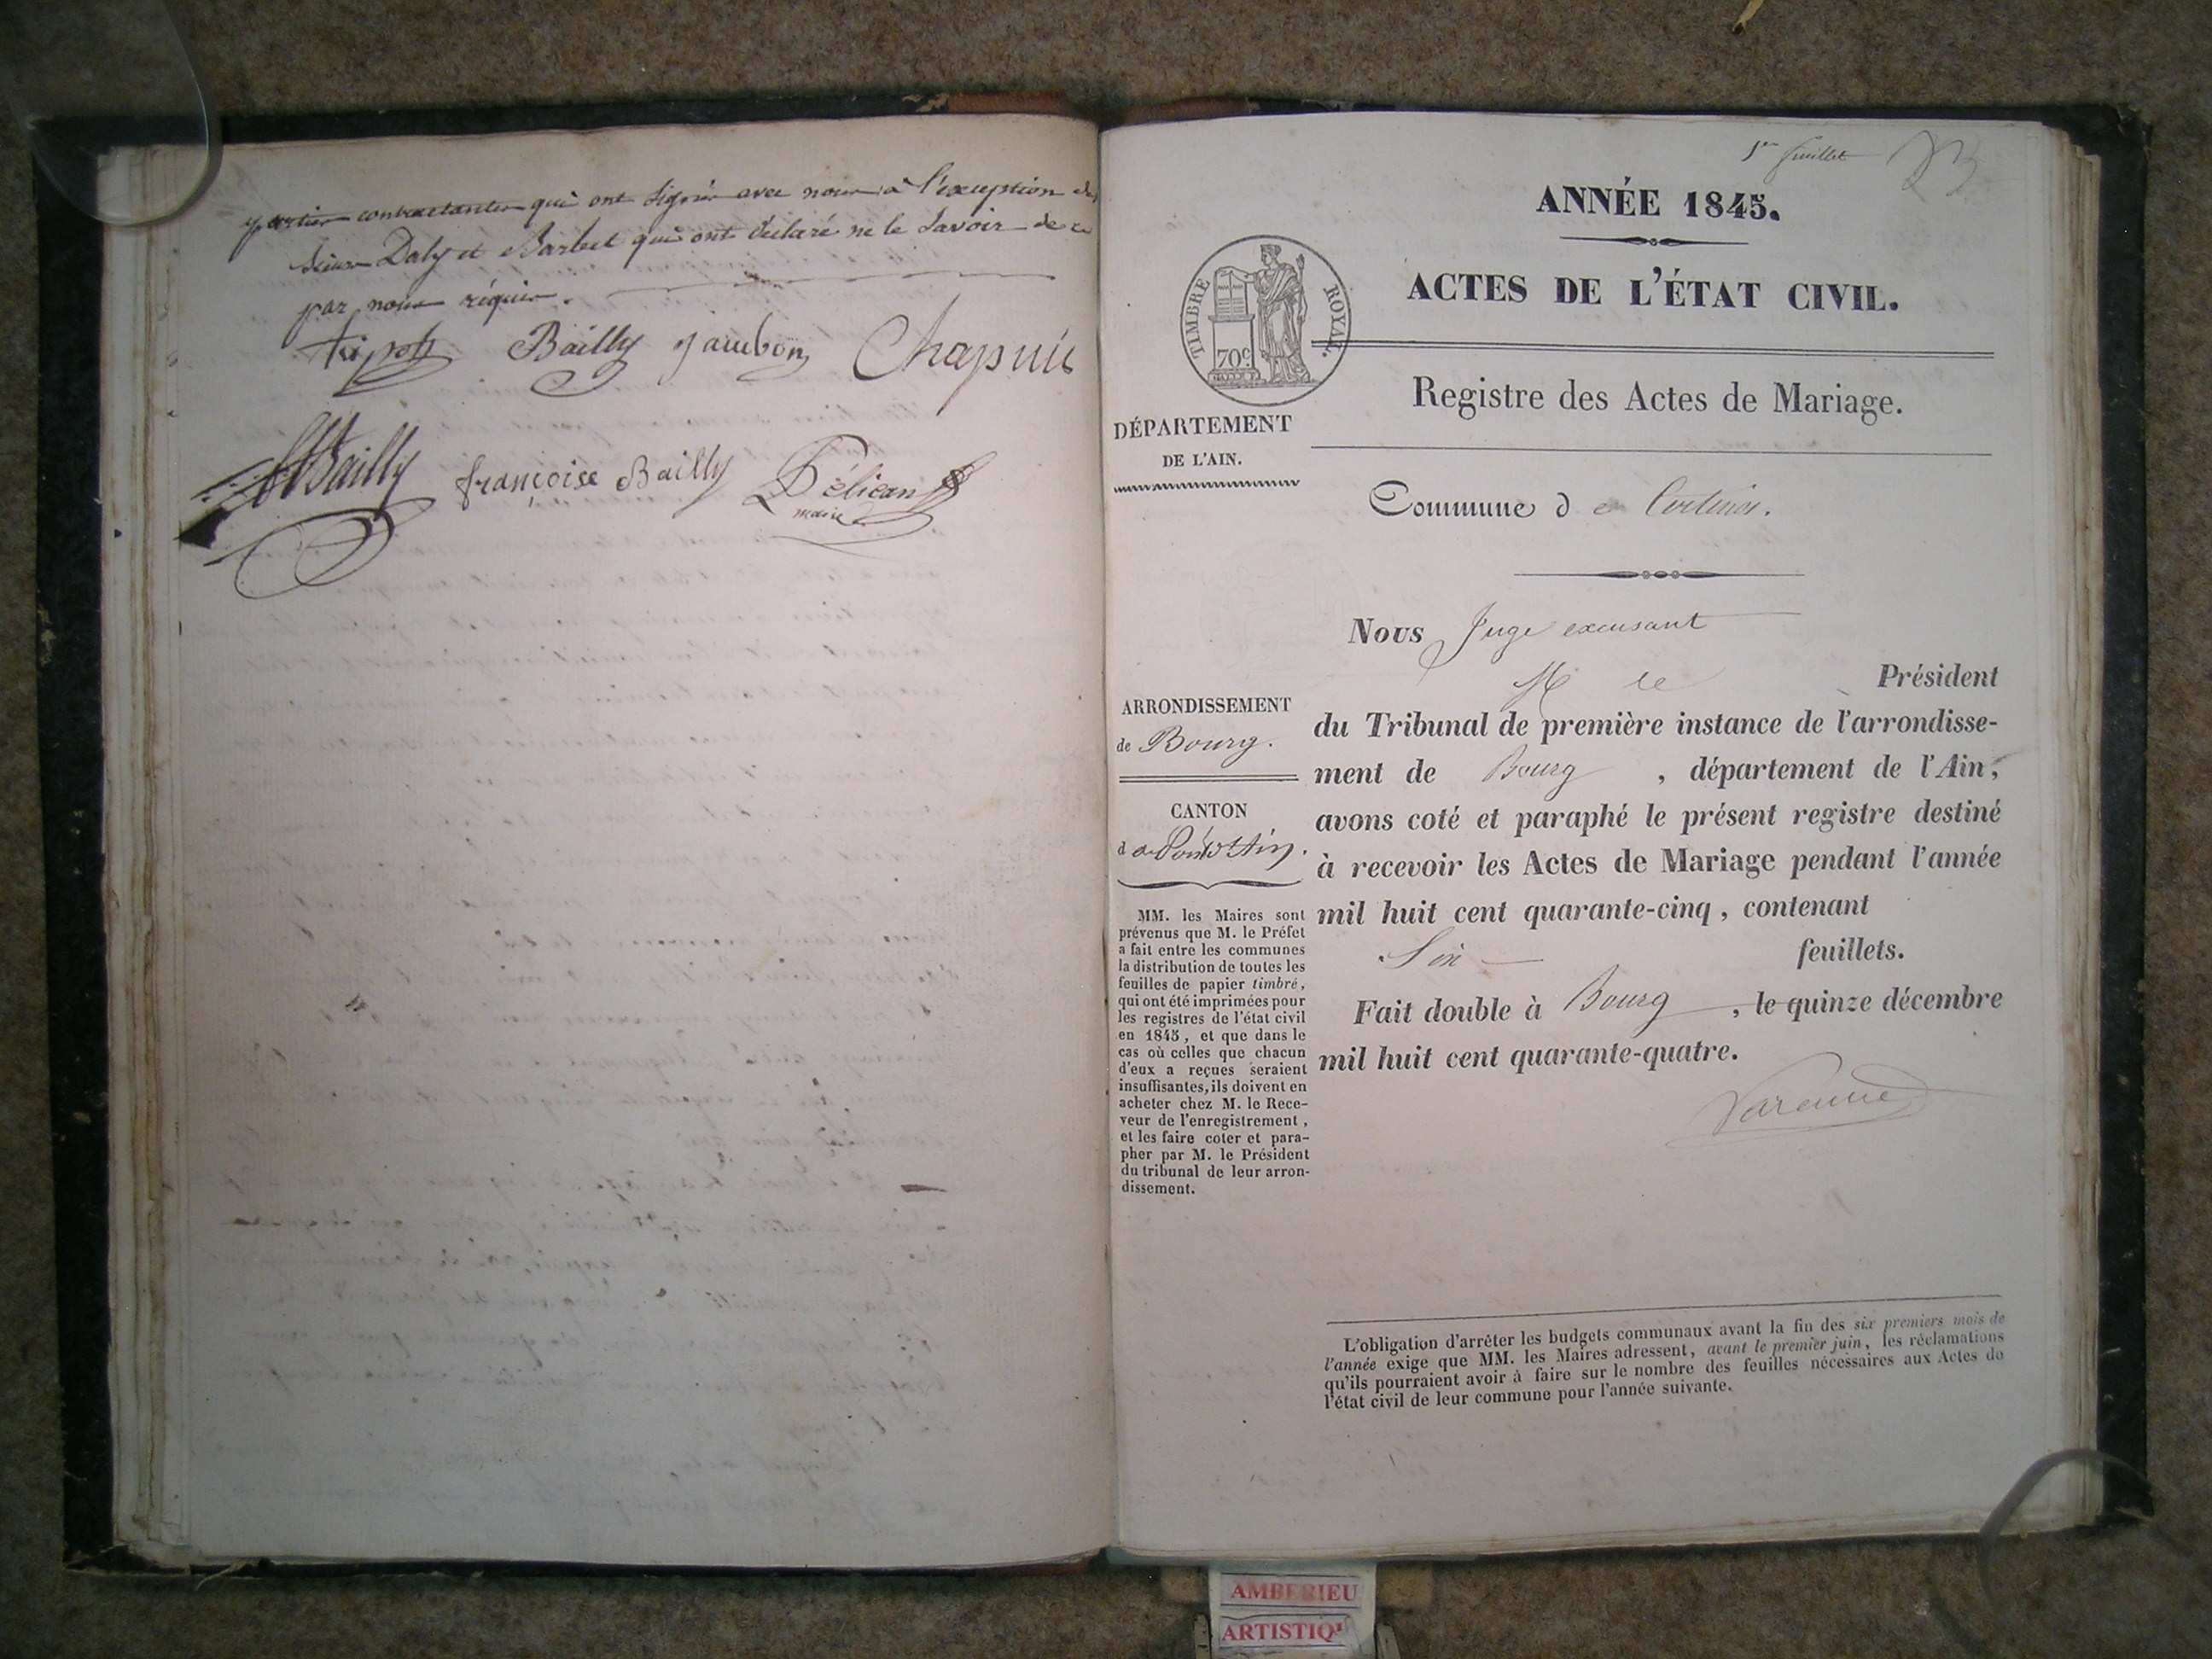 parties contractantes qui ont signé avec nous à l'exception des
sieurs Daly et Barbet qui ont déclaré ne le savoir de ce
par nous réquis.
Tripoz Bailly Jambon Chapuis
Bailly françoise Bailly Pélican
maire
1er feuillet
ANNÉE 1845.
ACTES DE L'ÉTAT CIVIL.
TIMBRE ROYAL.
70c
Registre des Actes de Mariage.
DÉPARTEMENT
DE L'AIN.
Commune de
Nous Juge excusant
M le Président
ARRONDISSEMENT
de Bourg.
du Tribunal de première instance de l'arrondisse-
ment de Bourg, département de l'Ain,
CANTON
de Pont d'Ain.
avons coté et paraphé le présent registre destiné
à recevoir les Actes de Mariage pendant l'année
mil huit cent quarante-cinq, contenant
Six feuillets.
Fait double à Bourg, le quinze décembre
mil huit cent quarante-quatre.
Varenne
MM. les Maires sont
prévenus que M. le Préfet
a fait entre les communes
la distribution de toutes les
feuilles de papier timbré,
qui ont été imprimées pour
les registres de l'état civil
en 1845, et que dans le
cas où celles que chacun
d'eux a reçues seraient
insuffisantes, ils doivent en
acheter chez M. le Rece-
veur de l'enregistrement,
et les faire coter et para-
pher par M. le Président
du tribunal de leur arron-
dissement.
L'obligation d'arrêter les budgets communaux avant la fin des six premiers mois de
l'année exige que MM. les Maires adressent, avant le premier juin, les réclamations
qu'ils pourraient avoir à faire sur le nombre des feuilles nécessaires aux Actes de
l'état civil de leur commune pour l'année suivante.
AMBERIEU
ARTISTIQ